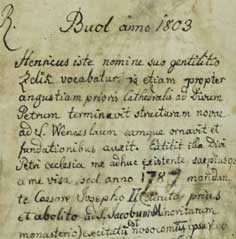 R. Buol anno 1803
Henricus iste nomine suo gentilitio
Zdik vocabatur, is etiam propter
angustiam prioris Cathedralis ad Divum
Petrum terminavit structuram novae
ad S. Wenceslaum eamque ornavit et
fundationibus auxit. Extitit illa Divi
Petri ecclesia me adhuc existente saepius
a me visa, sed anno 1787 mandan-
te Caesare Josepho II prius
et abolito S. Jacobum Minoritarum
monasterio)